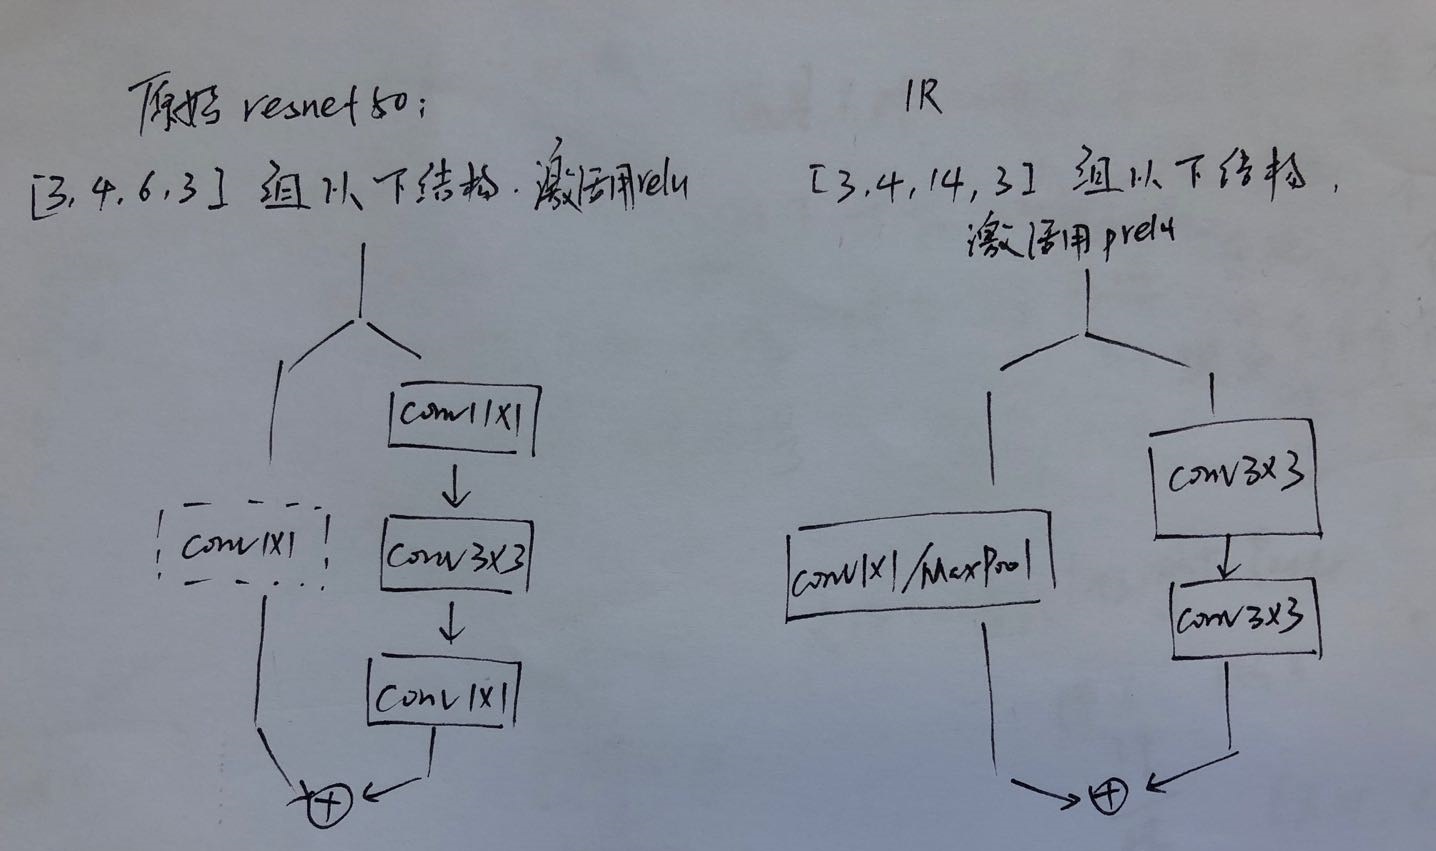 原始 resnet50:
[3,4,6,3] 组以下结构.激活用relu
conv1X1
conv1X1
conv3X3
conv1X1
IR
[3,4,14,3] 组以下结构,
激活用prelu
conv3X3
conv1X1/MaxPool
conv3X3